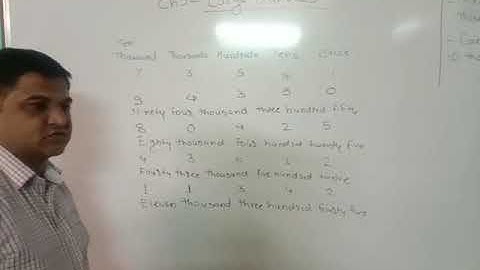 Ch 3- Large Numbers
Ten
Thousand Thousands Hundreds Tens Ones
7 3 5 1
9 4 3 5 0
Ninety four thousand three hundred fifty
8 0 4 2 5
Eighty thousand four hundred twenty five
4 3 5 1 2
Fourty three thousand five hundred twelve
1 1 3 4 2
Eleven thousand three hundred fourty five